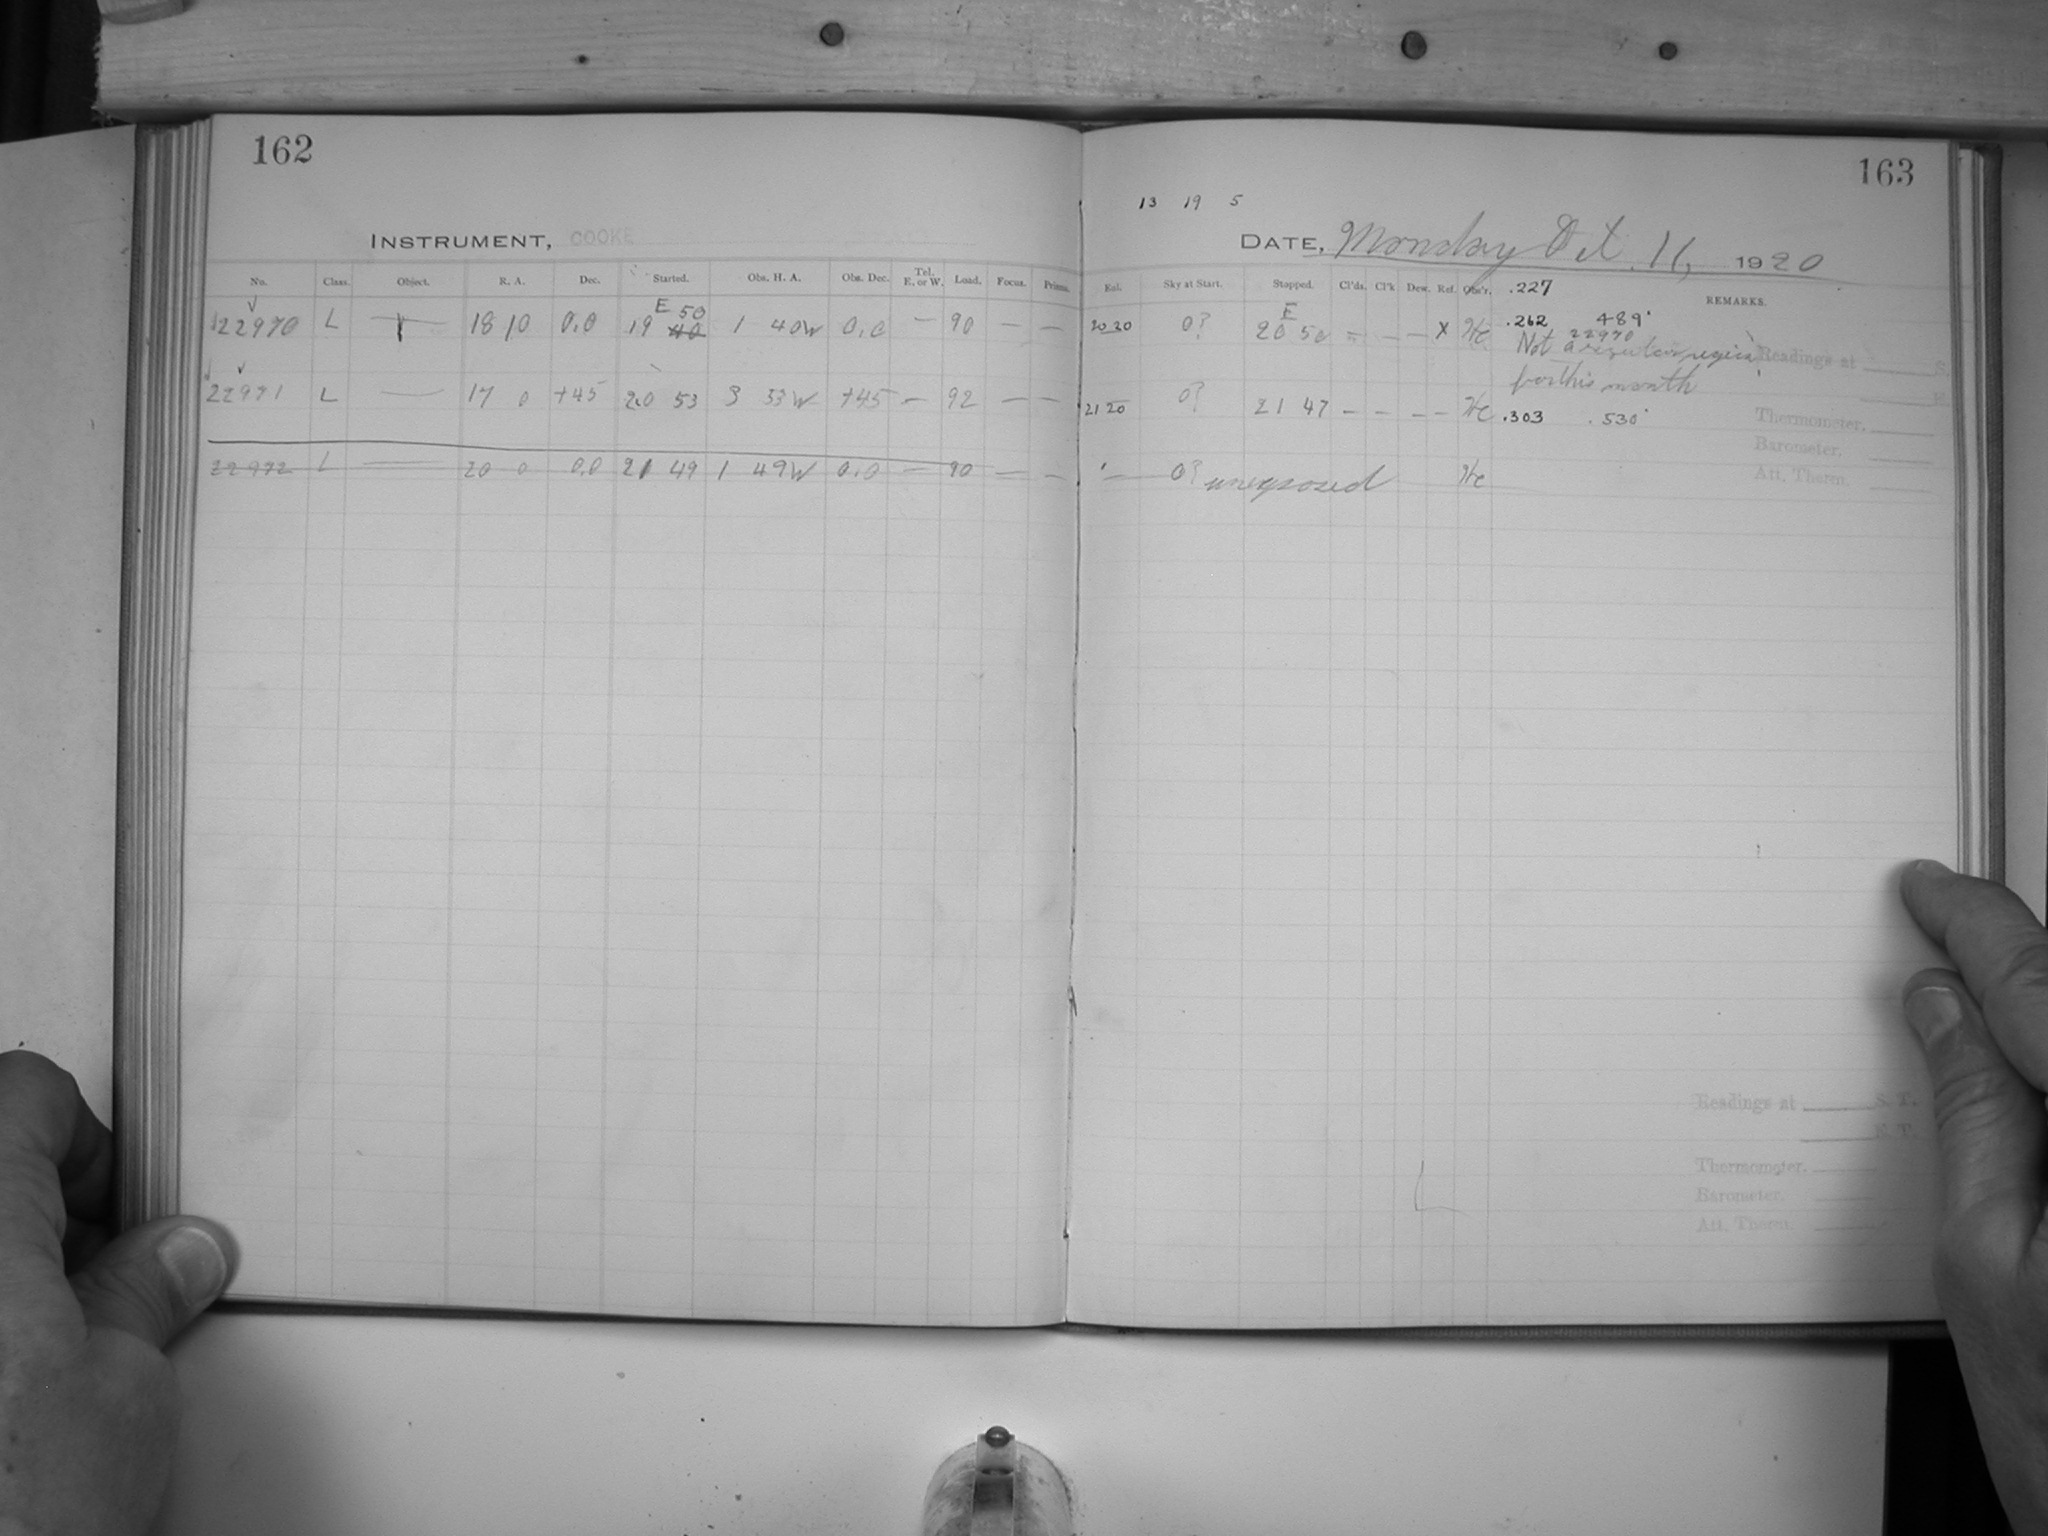 162
INSTRUMENT, COOKE
No. Class. Object. R. A. Dec. Started. Obs. H. A. Obs. Dec. Tel. E. or W. Load. Focus. Prisms.
E 50
22970 L — 18 10 0.0 19 40 1 40W 0.0 — 90 — —
22971 L — 17 0 +45 20 53 3 53W +45 — 92 — —
22972 L — 20 0 0.0 21 49 1 49W 0.0 — 90 — —
163
13 19 5
DATE, Monday Oct. 11, 1920
Exl. Sky at Start. Stopped. Cl'ds. Cl'k Dew. Ref. Obs'r. .227 REMARKS.
E
20 20 0? 20 50 = — — X Hc .262 489
22970
Not a regular region
for this month
Readings at
21 20 0? 21 47 — — — — Hc .303 .530
Thermometer.
Barometer.
Att. Therm.
— 0? unexposed Hc
Readings at S. T.
E. T.
Thermometer.
Barometer.
Att. Therm.